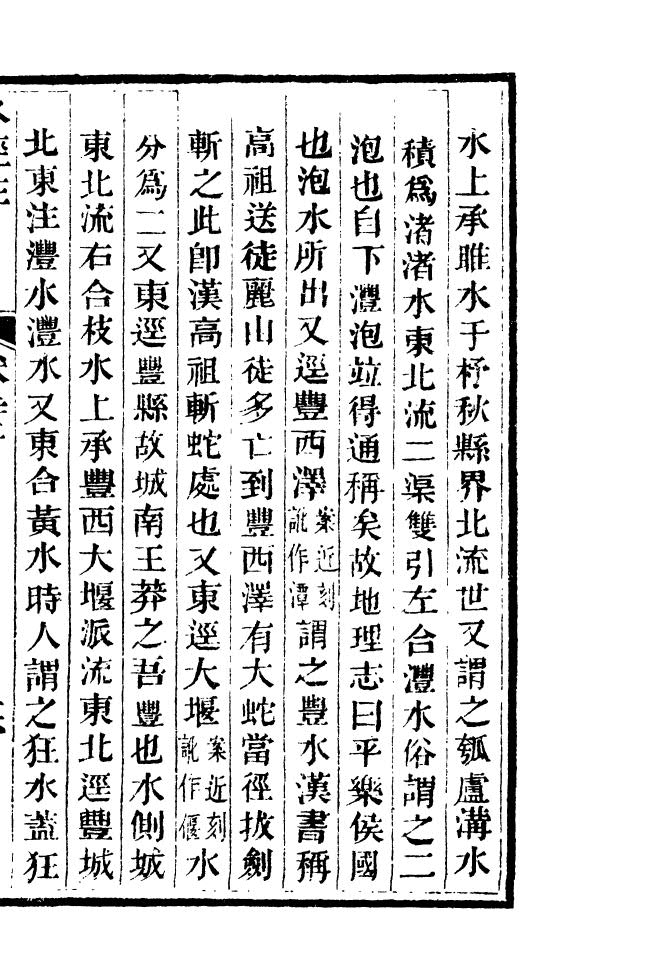 水上承睢水于杼秋縣界北流世又謂之瓠盧溝水
積爲渚渚水東北流二渠雙引左合灃水俗謂之二
泡也自下灃泡竝得通稱矣故地理志曰平樂侯國
也泡水所出又逕豐西澤案近刻訛作潭謂之豐水漢書稱
高祖送徒麗山徒多亡到豐西澤有大蛇當徑拔劍
斬之此卽漢高祖斬蛇處也又東逕大堰案近刻訛作偃水
分爲二又東逕豐縣故城南王莽之吾豐也水側城
東北流右合枝水上承豐西大堰派流東北逕豐城
北東注灃水灃水又東合黃水時人謂之狂水蓋狂
水經注